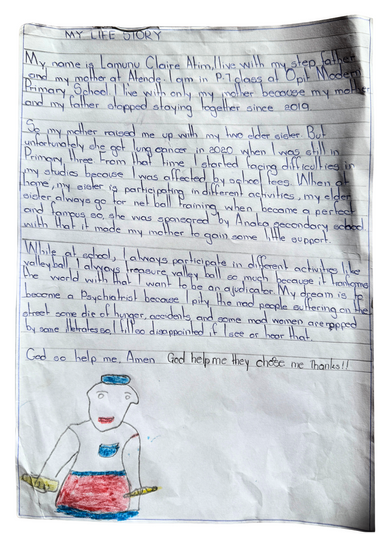 MY LIFE STORY
My name is Lamunu Claire Atim, I live with my step father
and my mother at Alende. I am in P.7 class at Opit Modern
Primary School. I live with only my mother because my mother
and my father stopped staying together since 2019.
So my mother raised me up with my two elder sister. But
unfortunately she got lung cancer in 2020 when I was still in
Primary three. From that time I started facing difficulties in
my studies because I was affected by school fees. When at
home, my sister is participating in different activities, my elder
sister always go for net ball training, when became a perfect
and famous so, she was sponsored by Anaka secondary school
with that it made my mother to gain some little support.
While at school, I always participate in different activities like
valleyball, I always treasure valley ball so much because it
the world with that I want to be an ajudicator. My dream is to
become a Psychiatrist because I pity the mad people suffering on the
street some die of hunger, accidents, and some mad women are rapped
by some I fill so disappointed if I see or hear that.
God so help me, Amen. God help me they choose me Thanks!!